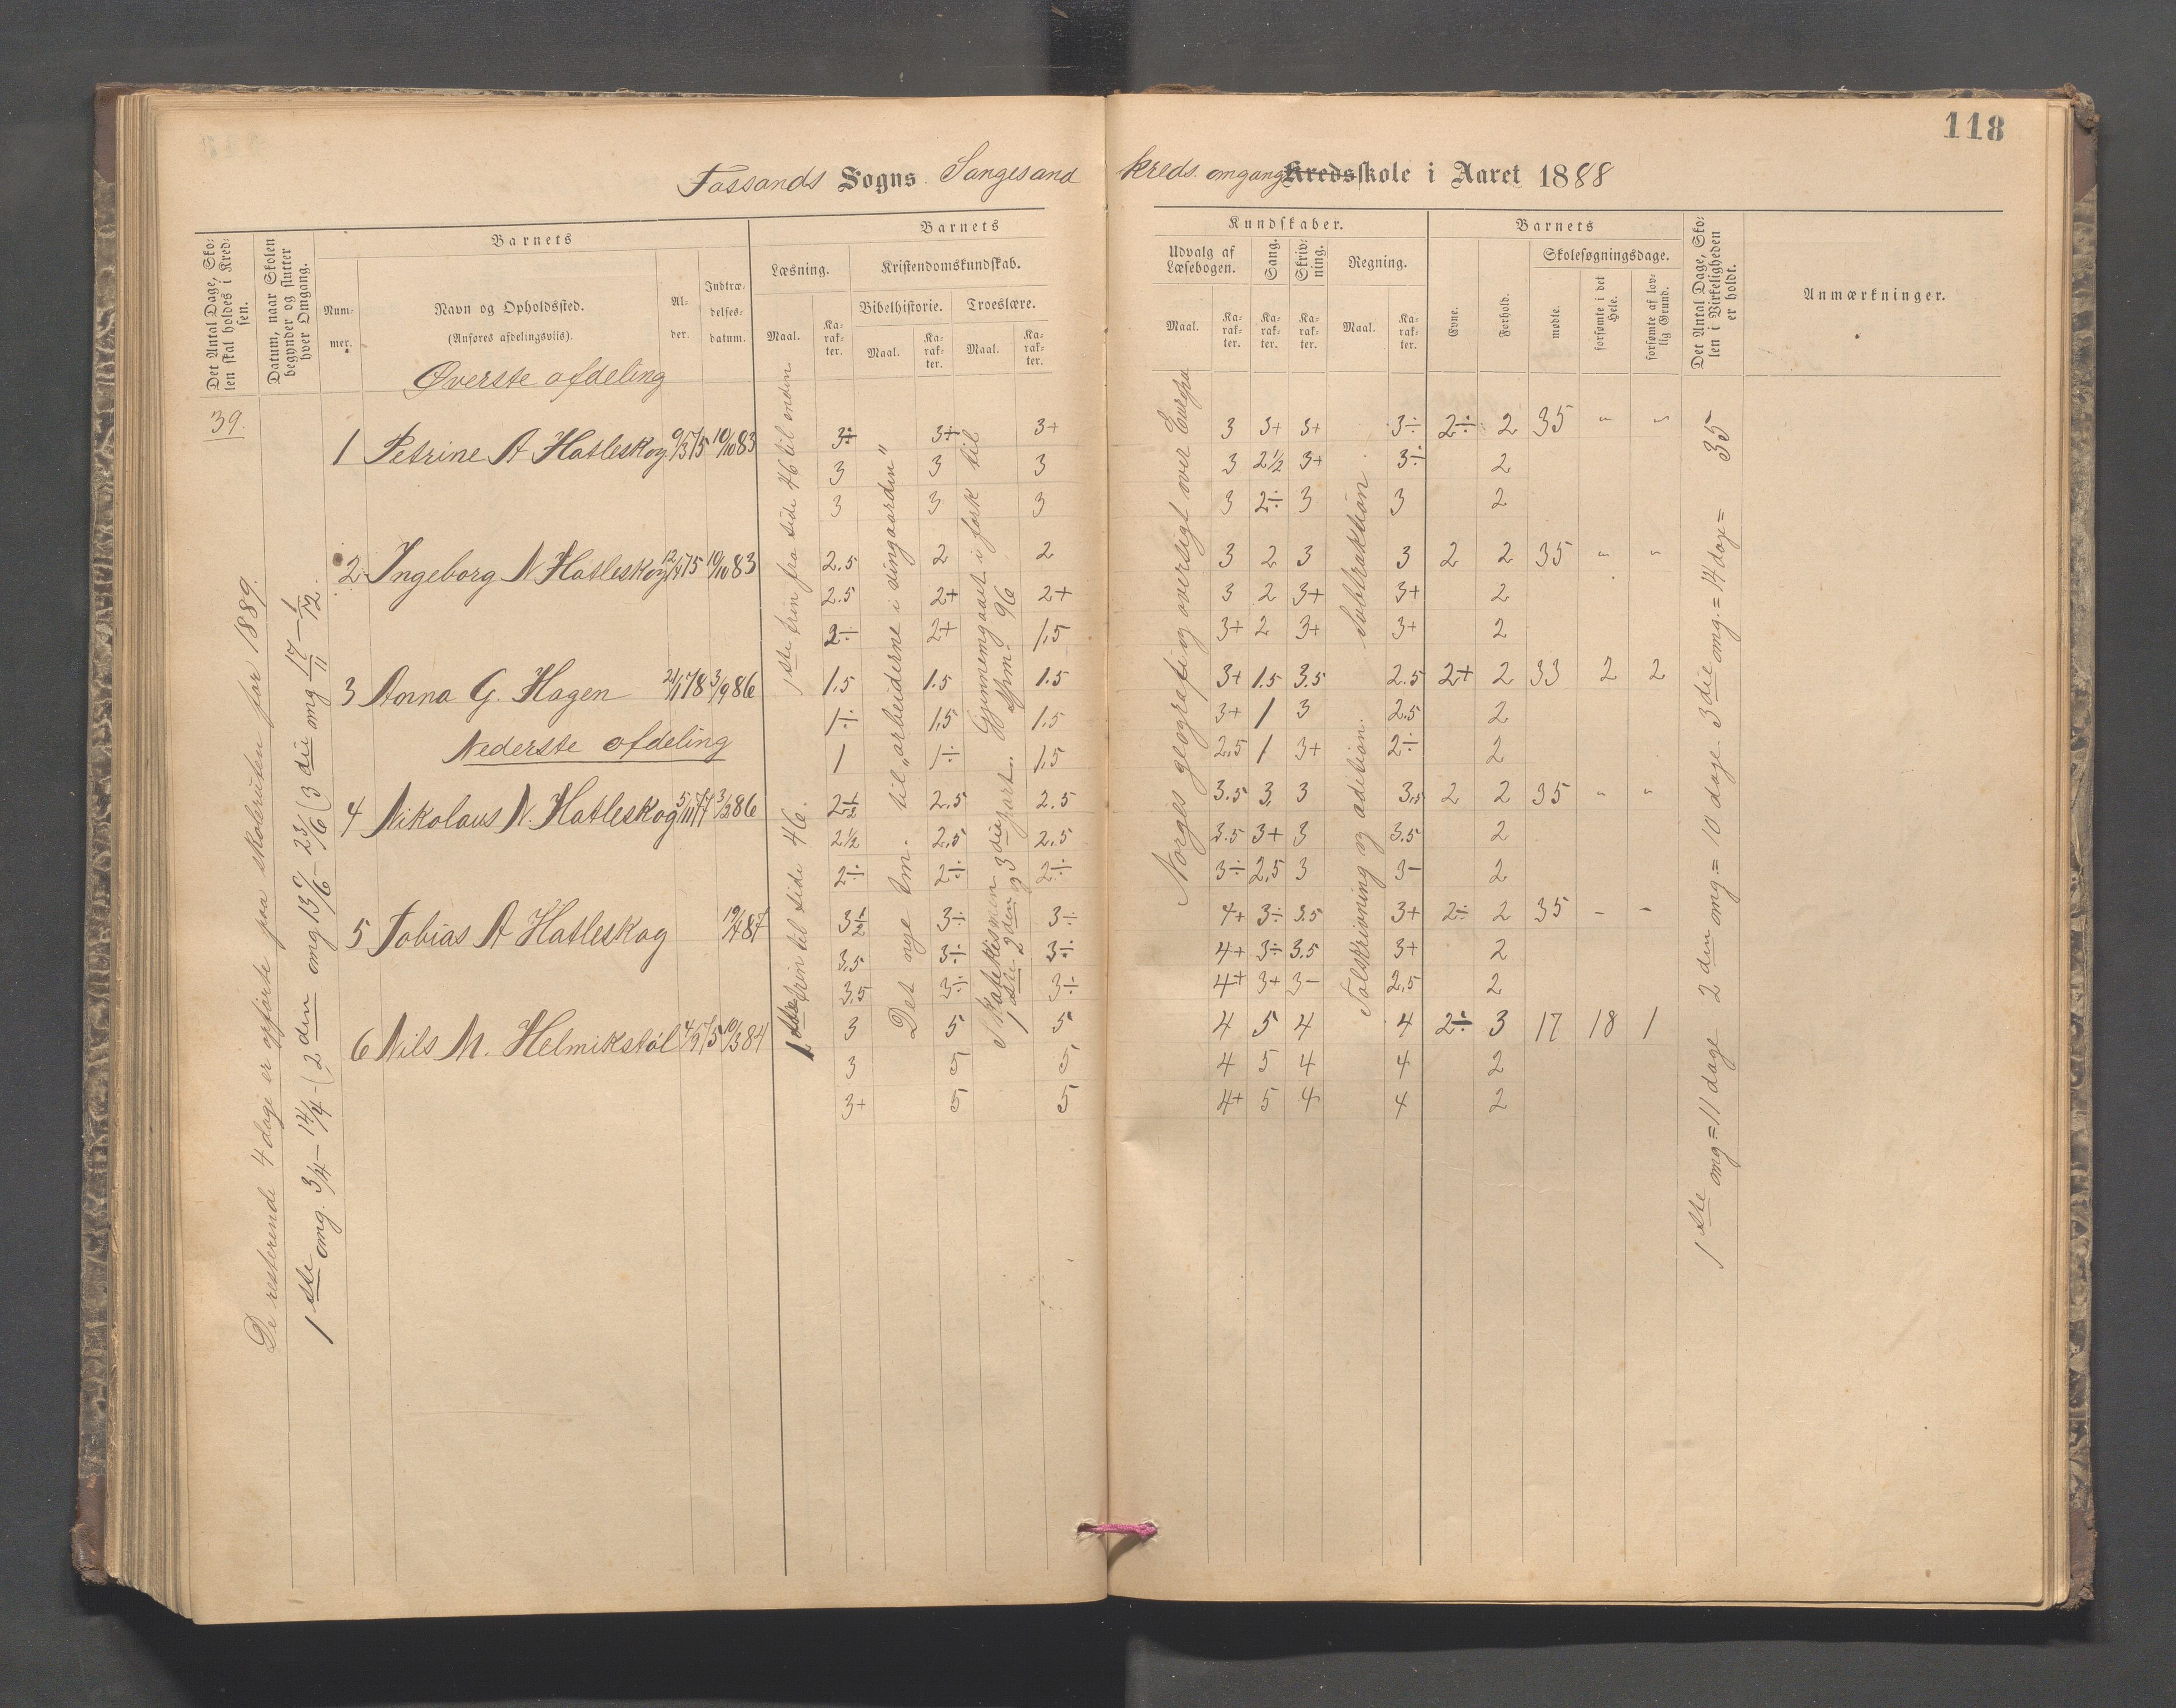 118
Fossands Sogns Songesand kreds. omgangs Kredsskole i Aaret 1888
Det Antal Dage, Skolen skal holdes i Kredsen.
Datum, naar Skolen begynder og slutter hver Omgang.
Barnets
Nummer.
Navn og Opholdssted.
(Anføres afdelingsviis).
Alder.
Indtrædelsesdatum.
Barnets Kundskaber.
Læsning.
Maal.
Karakter.
Kristendomskundskab.
Bibelhistorie.
Maal.
Karakter.
Troeslære.
Maal.
Karakter.
Udvalg af Læsebogen.
Maal.
Karakter.
Sang.
Karakter.
Skrivning.
Karakter.
Regning.
Maal.
Karakter.
Barnets
Evne.
Forhold.
Skolesøgningsdage.
mødte.
forsømte i det Hele.
forsømte af lovlig Grund.
Det Antal Dage, Skolen i Virkeligheden er holdt.
Anmærkninger.
39.
De resterende 4 dage er opførte paa skoleruten for 1889.
1 ste omg. 3/4 – 14/4 – (2 den omg. 13/6 – 23/6 (3 die omg 17/11 – 1/12.
Øverste afdeling
1 Petrine A Hatleskog 9/3 75 10/10 83 3÷ 3÷ 3+ 3 3+ 3+ 3÷ 2÷ 2 35 " "
3 3 3 3 2½ 3+ 3÷ 2
3 3 3 3 2÷ 3 3 2
2 Ingeborg N Hatleskog 12/4 75 10/10 83 2.5 2 2 3 2 3 3 2 2 35 " "
2.5 2+ 2+ 3 2 3+ 3+ 2
2÷ 2+ 1,5 3+ 2 3+ 3+ 2
3 Anna G. Hagen 21/1 78 3/9 86 1.5 1.5 1.5 3+ 1.5 3.5 2.5 2+ 2 33 2 2
1÷ 1,5 1.5 3+ 1 3 2.5 2
1 1÷ 1,5 2,5 1 3+ 2÷ 2
Nederste afdeling
4 Nikolaus N. Hatleskog 5/11 77 3/2 86 2½ 2.5 2.5 3.5 3. 3 3,5 2 2 35 " "
2½ 2,5 2.5 3.5 3+ 3 3.5 2
2÷ 2÷ 2÷ 3÷ 2,5 3 3- 2
5 Tobias A Hatleskog 19/4 87 3½ 3÷ 3÷ 4+ 3÷ 3.5 3+ 2÷ 2 35 - -
3.5 3÷ 3÷ 4+ 3÷ 3.5 3+ 2
3.5 3÷ 3÷ 4+ 3+ 3- 2,5 2
6 Nils M. Helmikstøl 4/9 75 10/3 84 3 5 5 4 5 4 4 2÷ 3 17 18 1
3 5 5 4 5 4 4 2
3+ 5 5 4+ 5 4 4 2
1 ste trin fra side 46 til enden
1ste trin til side 46.
Det nye tm. til "arbeiderne i vingaarden"
I katekismen 1 ste 2 den og 3 die part. Gjennemgaaet i forsk til Spm. 96
Norges geografi og oversigt over Europa
Talskrivning og addition. Subtraktion.
1 ste omg = 11 dage 2 den omg. = 10 dage. 3 die omg. = 14 dage = 35